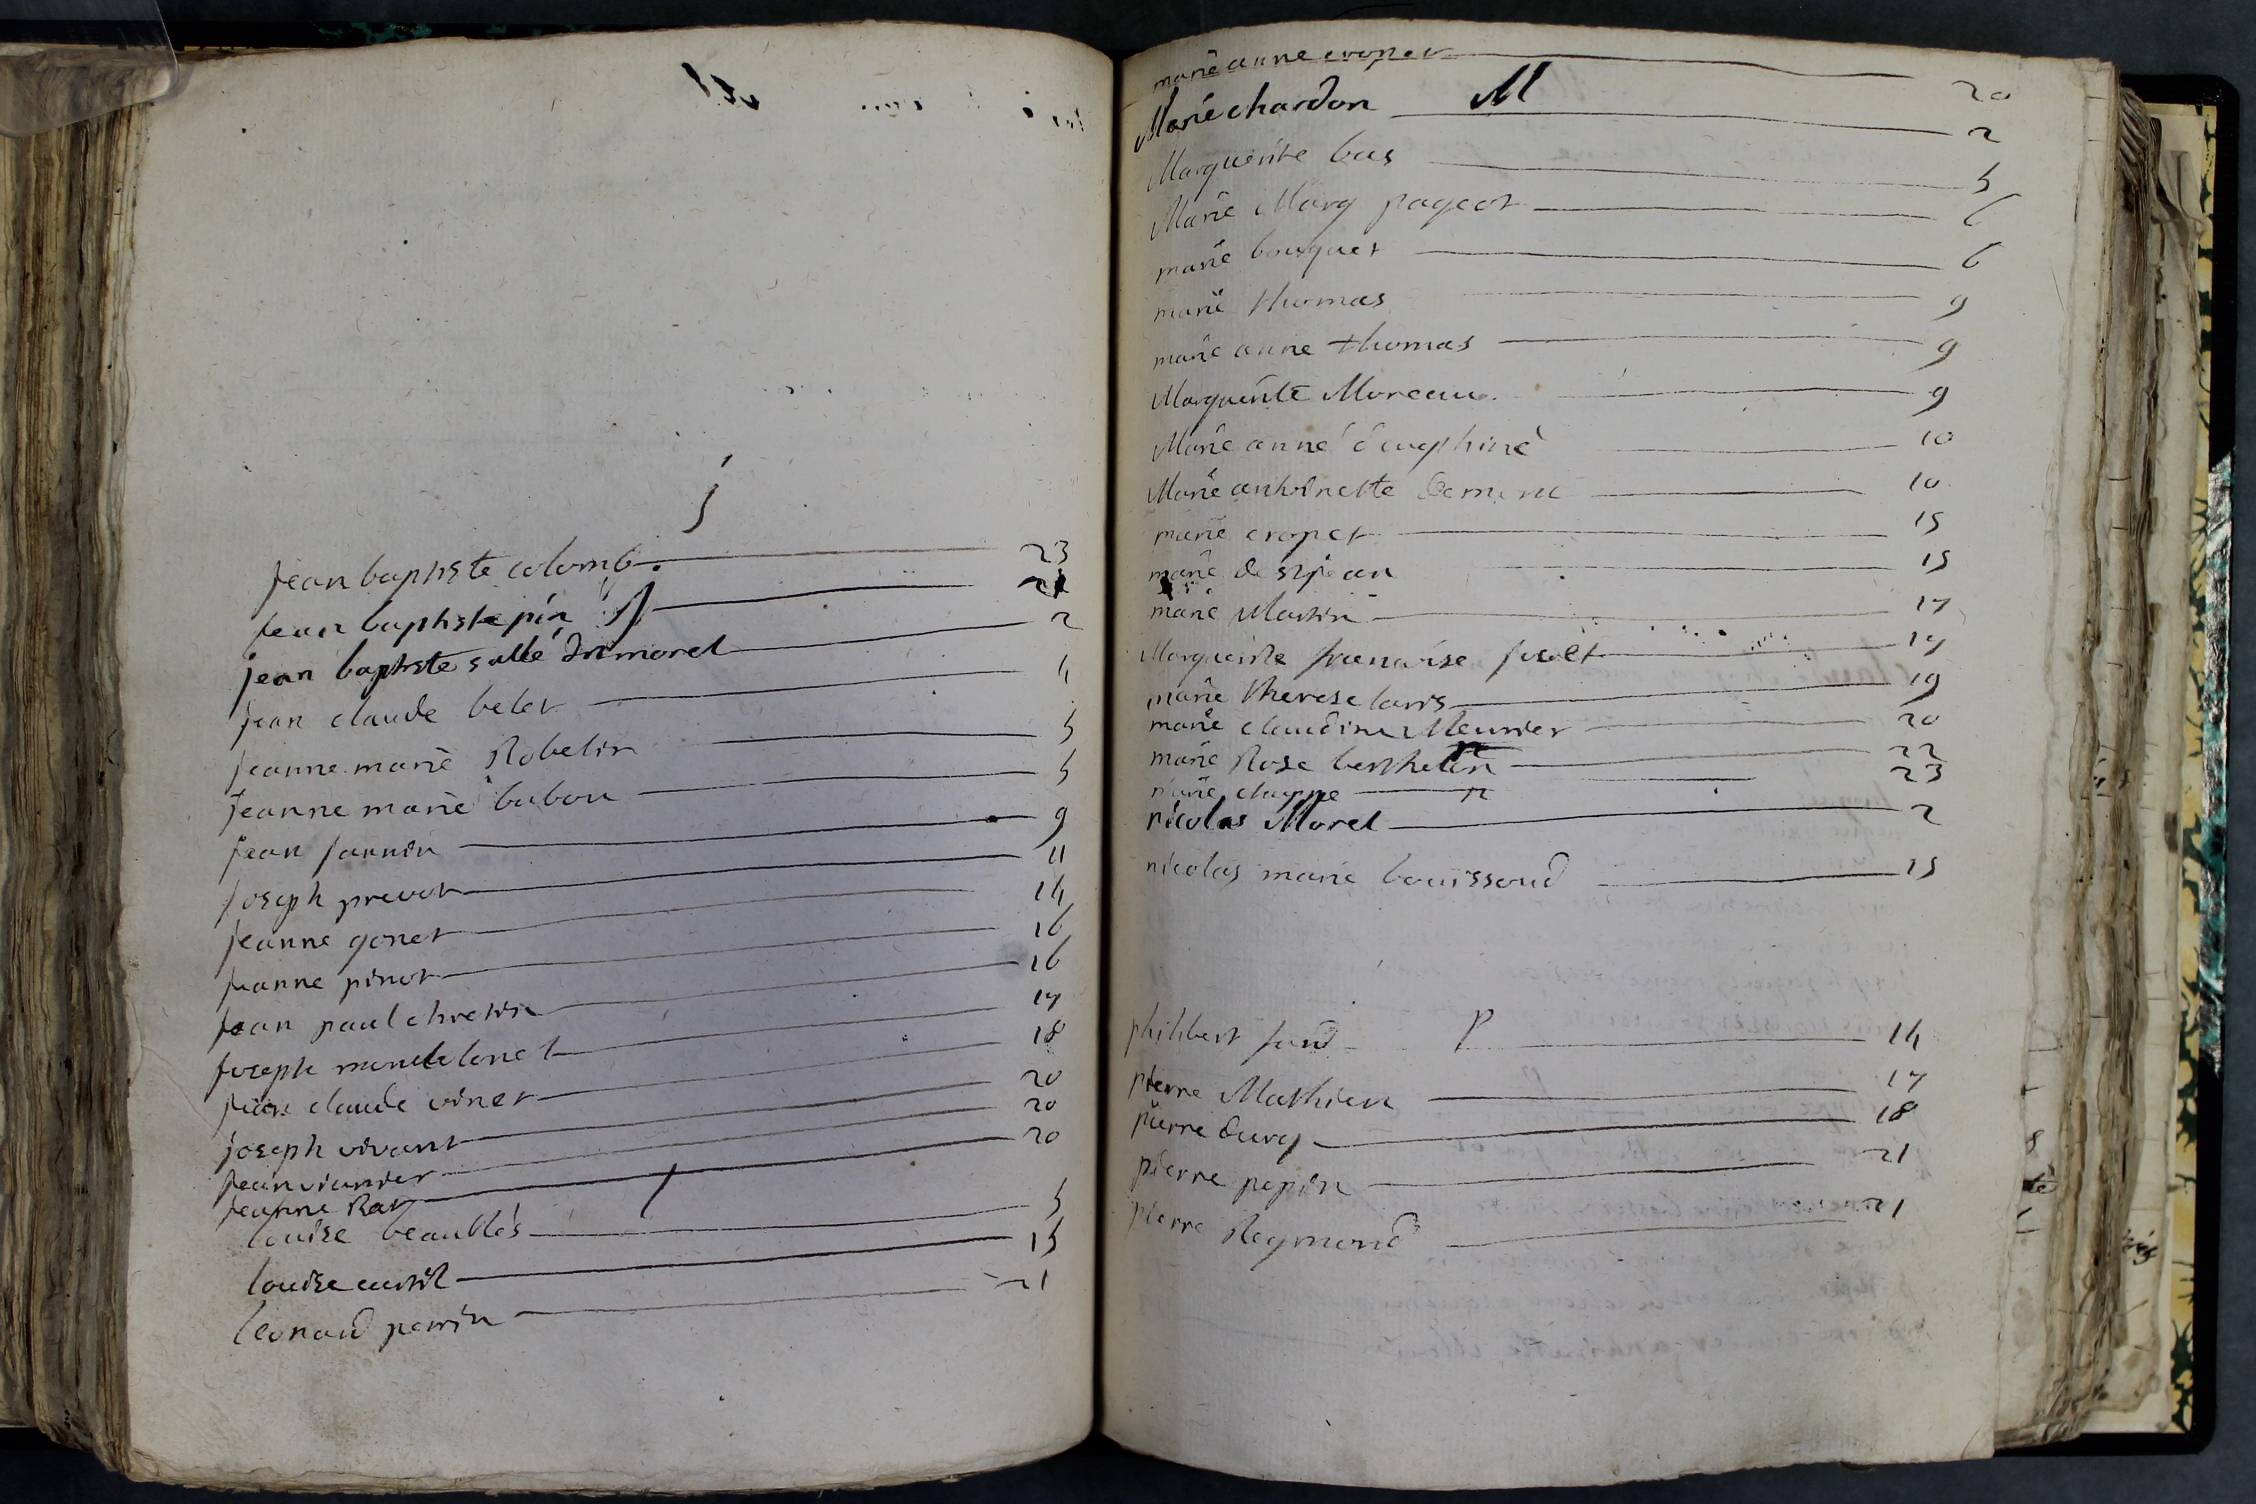 j
jean baptiste colomb. 23
jean baptiste pin 21
jean baptiste sallé dit morel 2
jean claude belet 4
jeanne marie Robelin 5
jeanne marie bubou 5
jean jannin 9
joseph prevot 11
jeanne gonet 14
jeanne pinot 16
jean paul chretin 16
joseph 17
jean claude vinet 18
joseph vivant 20
jean vianier 20
jeanne Rat 20
l
louise beaublés 5
louise curtil 15
leonard perrin 21
marie anne cropet 20
M
Marie chardon 2
Marguerite bas 5
Marie Marg pageot 6
marie bousquet 6
marie thomas 9
marie anne thomas 9
Marguerite Moreau. 9
Marie anne dauphine 10
Marie anthoinette 10
marie cropet 15
marie de st jean 15
marie Martin 17
Marguerite francoise 17
marie therese laris 19
marie claudine Meunier 20
marie Rose berthelin 22
marie chappe 23
n
nicolas Morel 2
nicolas marie bouissoud 15
P
philibert 14
pierre Mathieu 17
pierre dury 18
pierre pepin 21
pierre Reymond 21